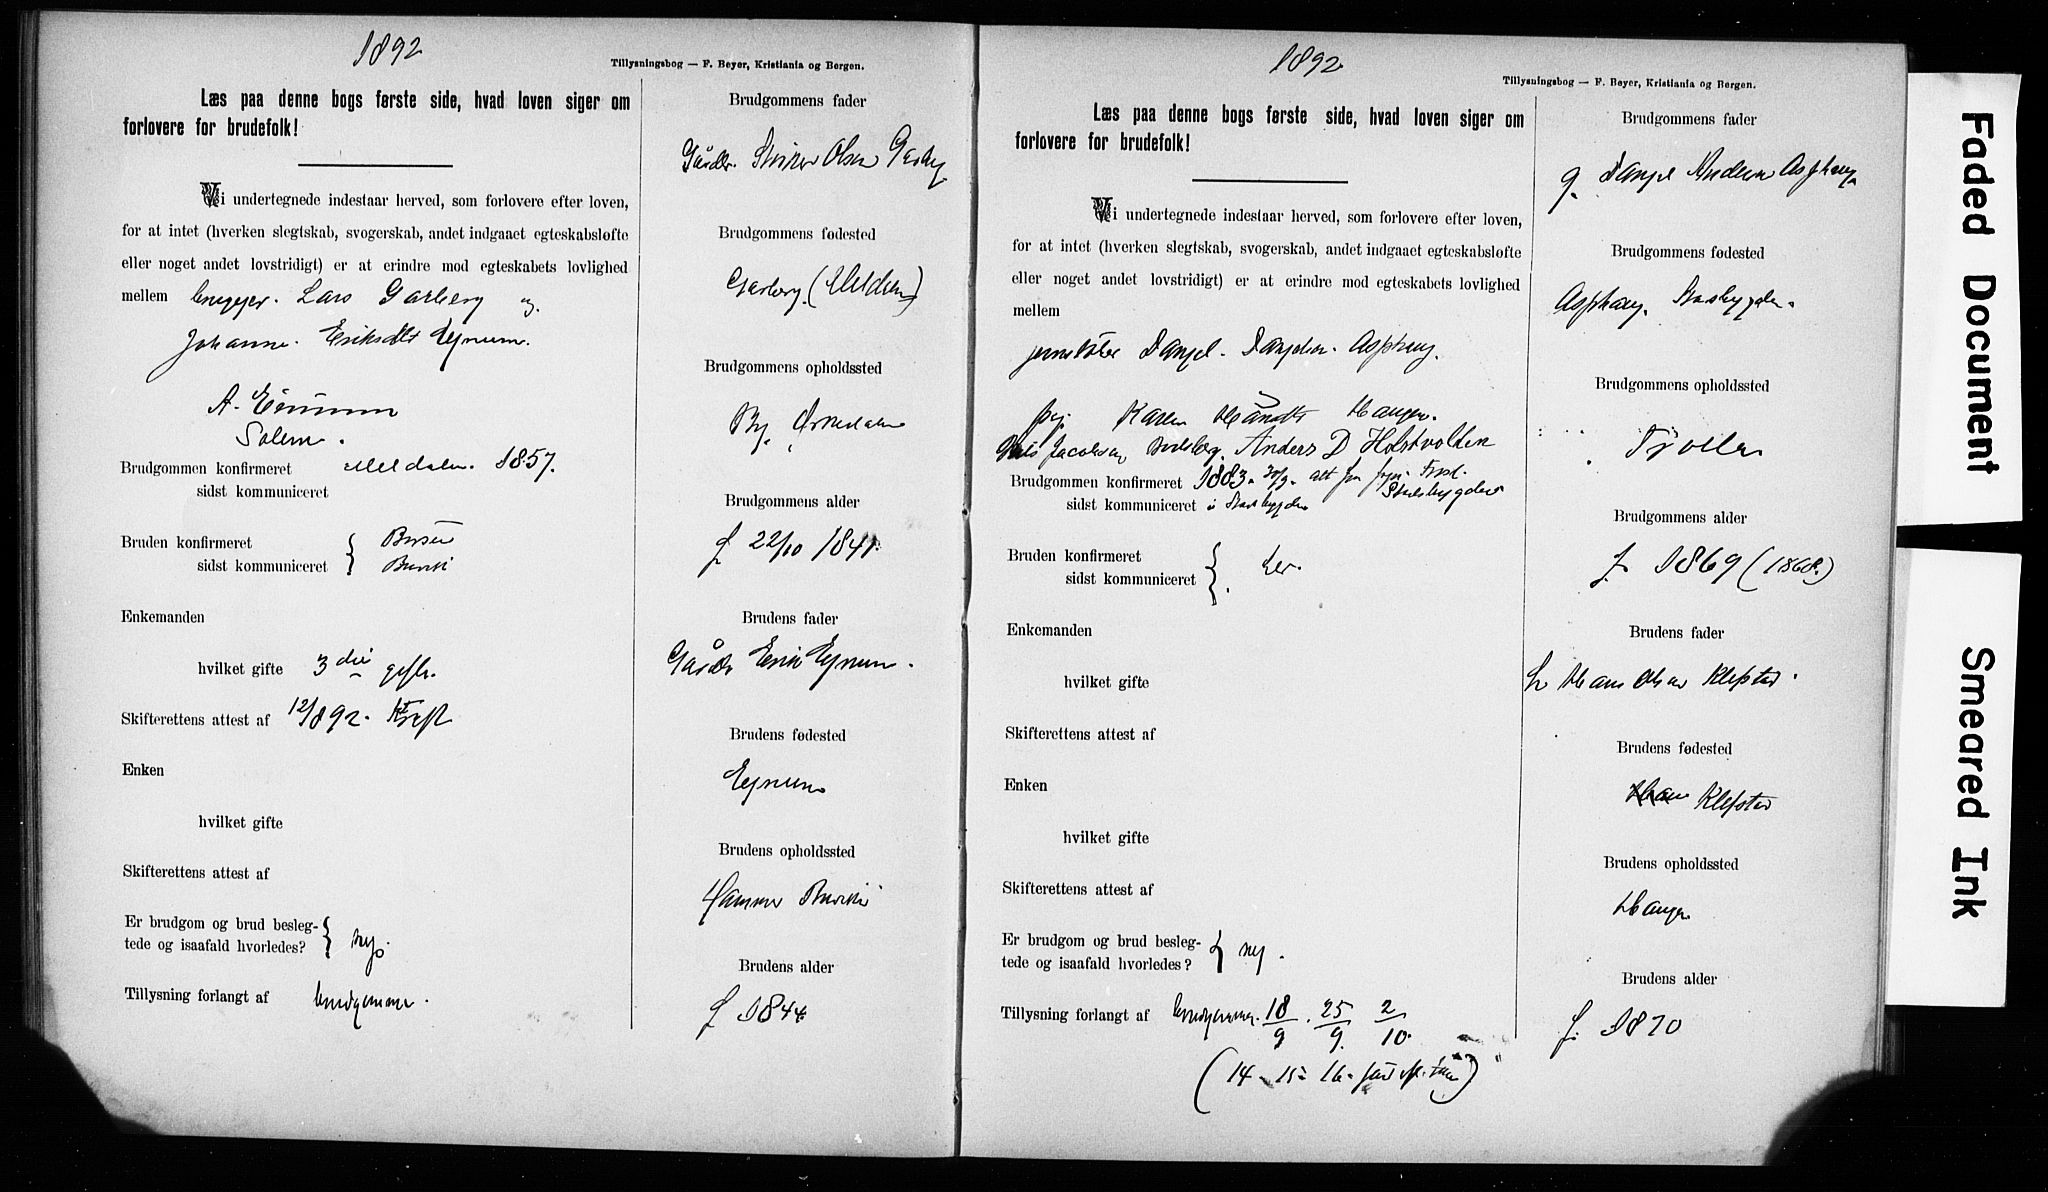 1892
Tillysningsbog — F. Beyer, Kristiania og Bergen.
Læs paa denne bogs første side, hvad loven siger om
forlovere for brudefolk!
Vi undertegnede indestaar herved, som forlovere efter loven,
for at intet (hverken slegtskab, svogerskab, andet indgaaet egteskabsløfte
eller noget andet lovstridigt) er at erindre mod egteskabets lovlighed
mellem Lars Garberg og
Johanne Eriksdtr Eynum.
A. Einum
Solem.
Brudgommen konfirmeret Meldalen 1857.
sidst kommuniceret
Bruden konfirmeret
sidst kommuniceret
Enkemanden
hvilket gifte 3die gifte.
Skifterettens attest af 12/892.
Enken
hvilket gifte
Skifterettens attest af
Er brudgom og brud besleg-
tede og isaafald hvorledes? nej.
Tillysning forlangt af brudgommen.
Brudgommens fader
Gårdbr. Olsen Garberg
Brudgommens fødested
Garberg (Meldalen)
Brudgommens opholdssted
By,
Brudgommens alder
f. 22/10 1841.
Brudens fader
Gårdbr Erik Eynum.
Brudens fødested
Eynum
Brudens opholdssted
Hammer
Brudens alder
f. 1844.
1892.
Tillysningsbog — F. Beyer, Kristiania og Bergen.
Læs paa denne bogs første side, hvad loven siger om
forlovere for brudefolk!
Vi undertegnede indestaar herved, som forlovere efter loven,
for at intet (hverken slegtskab, svogerskab, andet indgaaet egteskabsløfte
eller noget andet lovstridigt) er at erindre mod egteskabets lovlighed
mellem
Danjel Danjelsen Asphaug.
pig. Karen Haugen.
Jacobsen Anders D Holstvolden
Brudgommen konfirmeret 1883. 30/9. att fra Stadsbygden
sidst kommuniceret i Stadsbygden
Bruden konfirmeret
sidst kommuniceret her.
Enkemanden
hvilket gifte
Skifterettens attest af
Enken
hvilket gifte
Skifterettens attest af
Er brudgom og brud besleg-
tede og isaafald hvorledes? nej.
Tillysning forlangt af brudgommen. 18/9. 25/9. 2/10.
(14 - 15 - 16.
Brudgommens fader
g. Danjel Andersen Asphaug
Brudgommens fødested
Asphaug. Stadsbygden.
Brudgommens opholdssted
Trolla
Brudgommens alder
f. 1869 (1868.)
Brudens fader
Hans Olsen Klefstad.
Brudens fødested
Klefstad
Brudens opholdssted
Haugen
Brudens alder
f. 1870
Faded Document
Smeared Ink